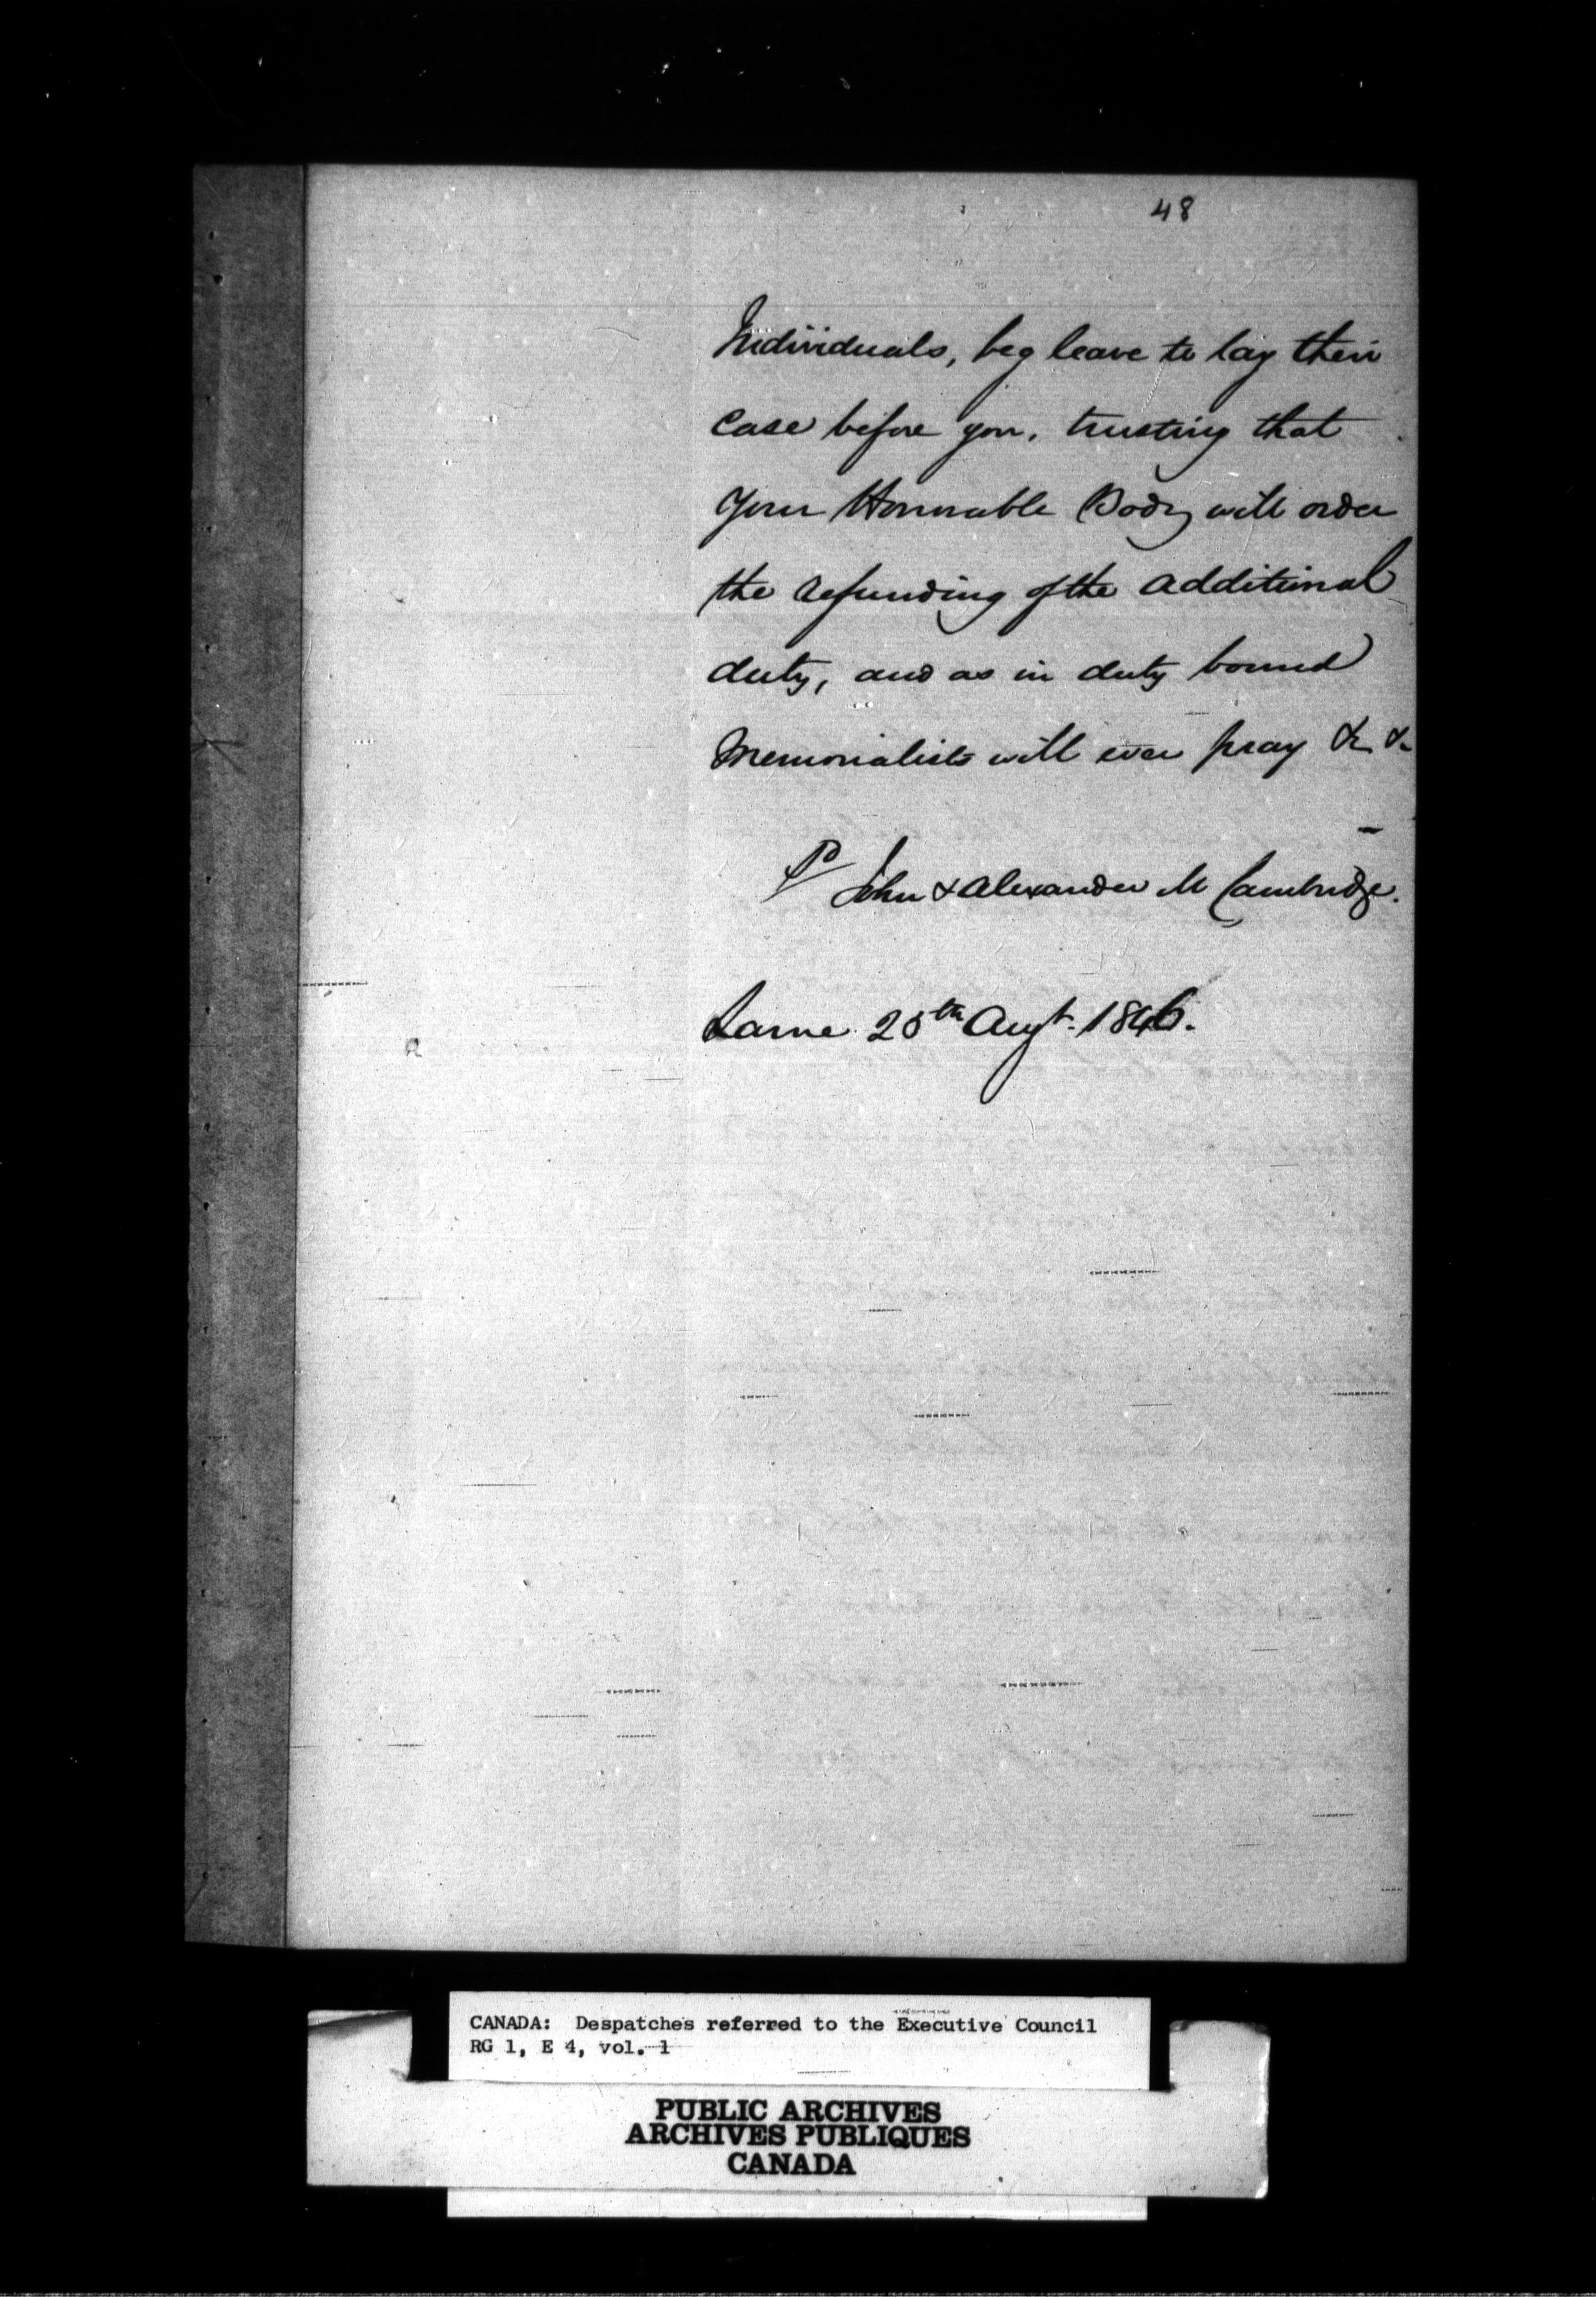 48
Individuals, beg leave to lay their
case before you, trusting that
Your Honorable Body will order
the refunding of the additional
duty, and as in duty bound
Memorialists will ever pray &c &c
P John & Alexander M Cambridge.
Larne 25th Augt. 1846.
CANADA: Despatches referred to the Executive Council
RG 1, E 4, vol. 1
PUBLIC ARCHIVES
ARCHIVES PUBLIQUES
CANADA